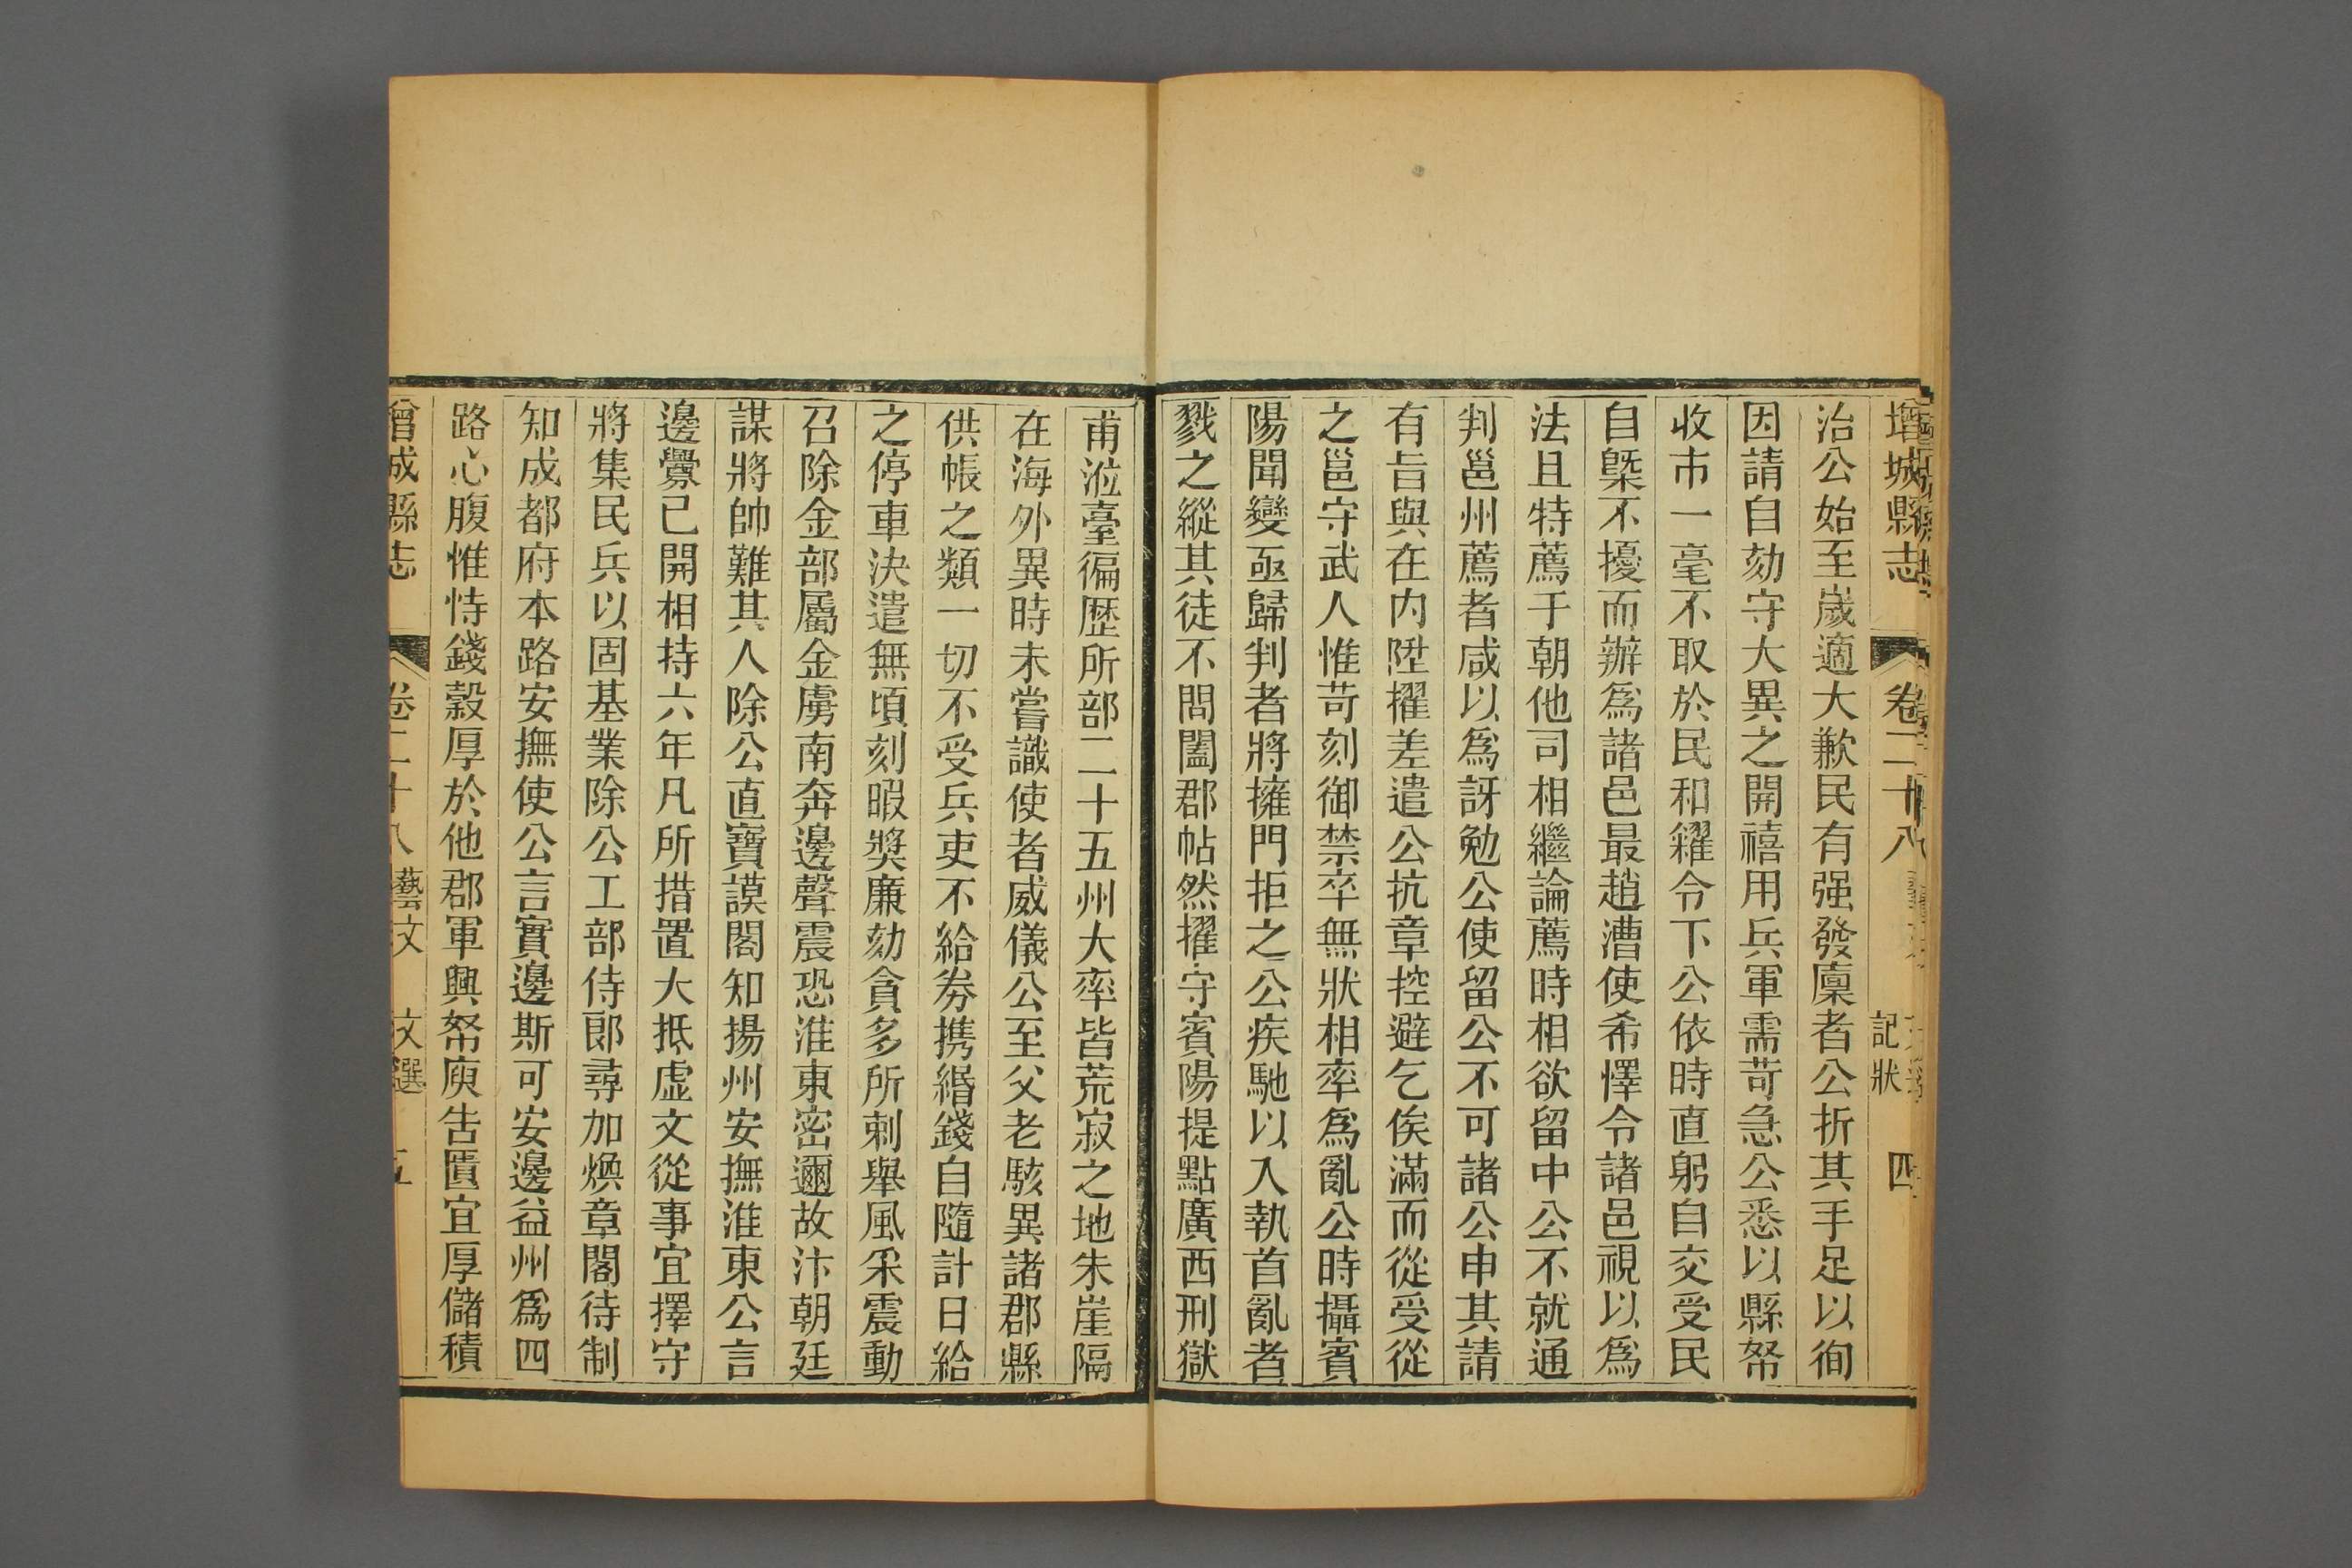 增城縣志 卷二十八 記狀 四
治公始至嵗適大歉民有强發廩者公折其手足以徇
因請自劾守大異之開禧用兵軍需苛急公悉以縣帑
收市一毫不取於民和糴令下公依時直躬自交受民
自槩不擾而辦爲諸邑最趙漕使希懌令諸邑視以爲
法且特薦于朝他司相繼論薦時相欲留中公不就通
判邕州薦者咸以爲訝勉公使留公不可諸公申其請
有旨與在内陞擢差遣公抗章控避乞俟滿而從受從
之邕守武人惟苛刻御禁卒無狀相率爲亂公時攝賓
陽聞變亟歸判者將擁門拒之公疾馳以入執首亂者
戮之縱其徒不問闔郡帖然擢守賓陽提點廣西刑獄
甫涖臺徧歷所部二十五州大率皆荒寂之地朱崖隔
在海外異時未嘗識使者威儀公至父老駭異諸郡縣
供帳之類一切不受兵吏不給券携緡錢自隨計日給
之停車決遣無頃刻暇奬廉劾貪多所刺舉風采震動
召除金部屬金虜南奔邊聲震恐淮東密邇故汴朝廷
謀將帥難其人除公直寶謨閣知揚州安撫淮東公言
邊釁已開相持六年凡所措置大抵虛文從事宜擇守
將集民兵以固基業除公工部侍郎尋加煥章閣待制
知成都府本路安撫使公言實邊斯可安邊益州爲四
路心腹惟恃錢穀厚於他郡軍興帑庾告匱宜厚儲積
增城縣志 卷二十八 藝文 文選 五